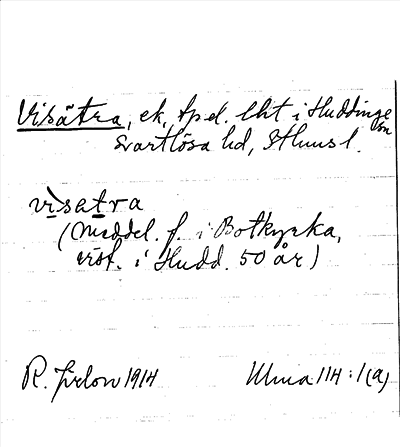 Visätra, ek, spel. lht i Huddinge sn
Svartlösa hd, Sthms l.
visatra
(Meddel. f. i Botkyrka,
vist. i Hudd. 50 år)
R. Jirlow 1914 Ulma 114:1(a)